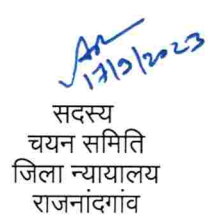 17/9/2023
सदस्य
चयन समिति
जिला न्यायालय
राजनांदगांव